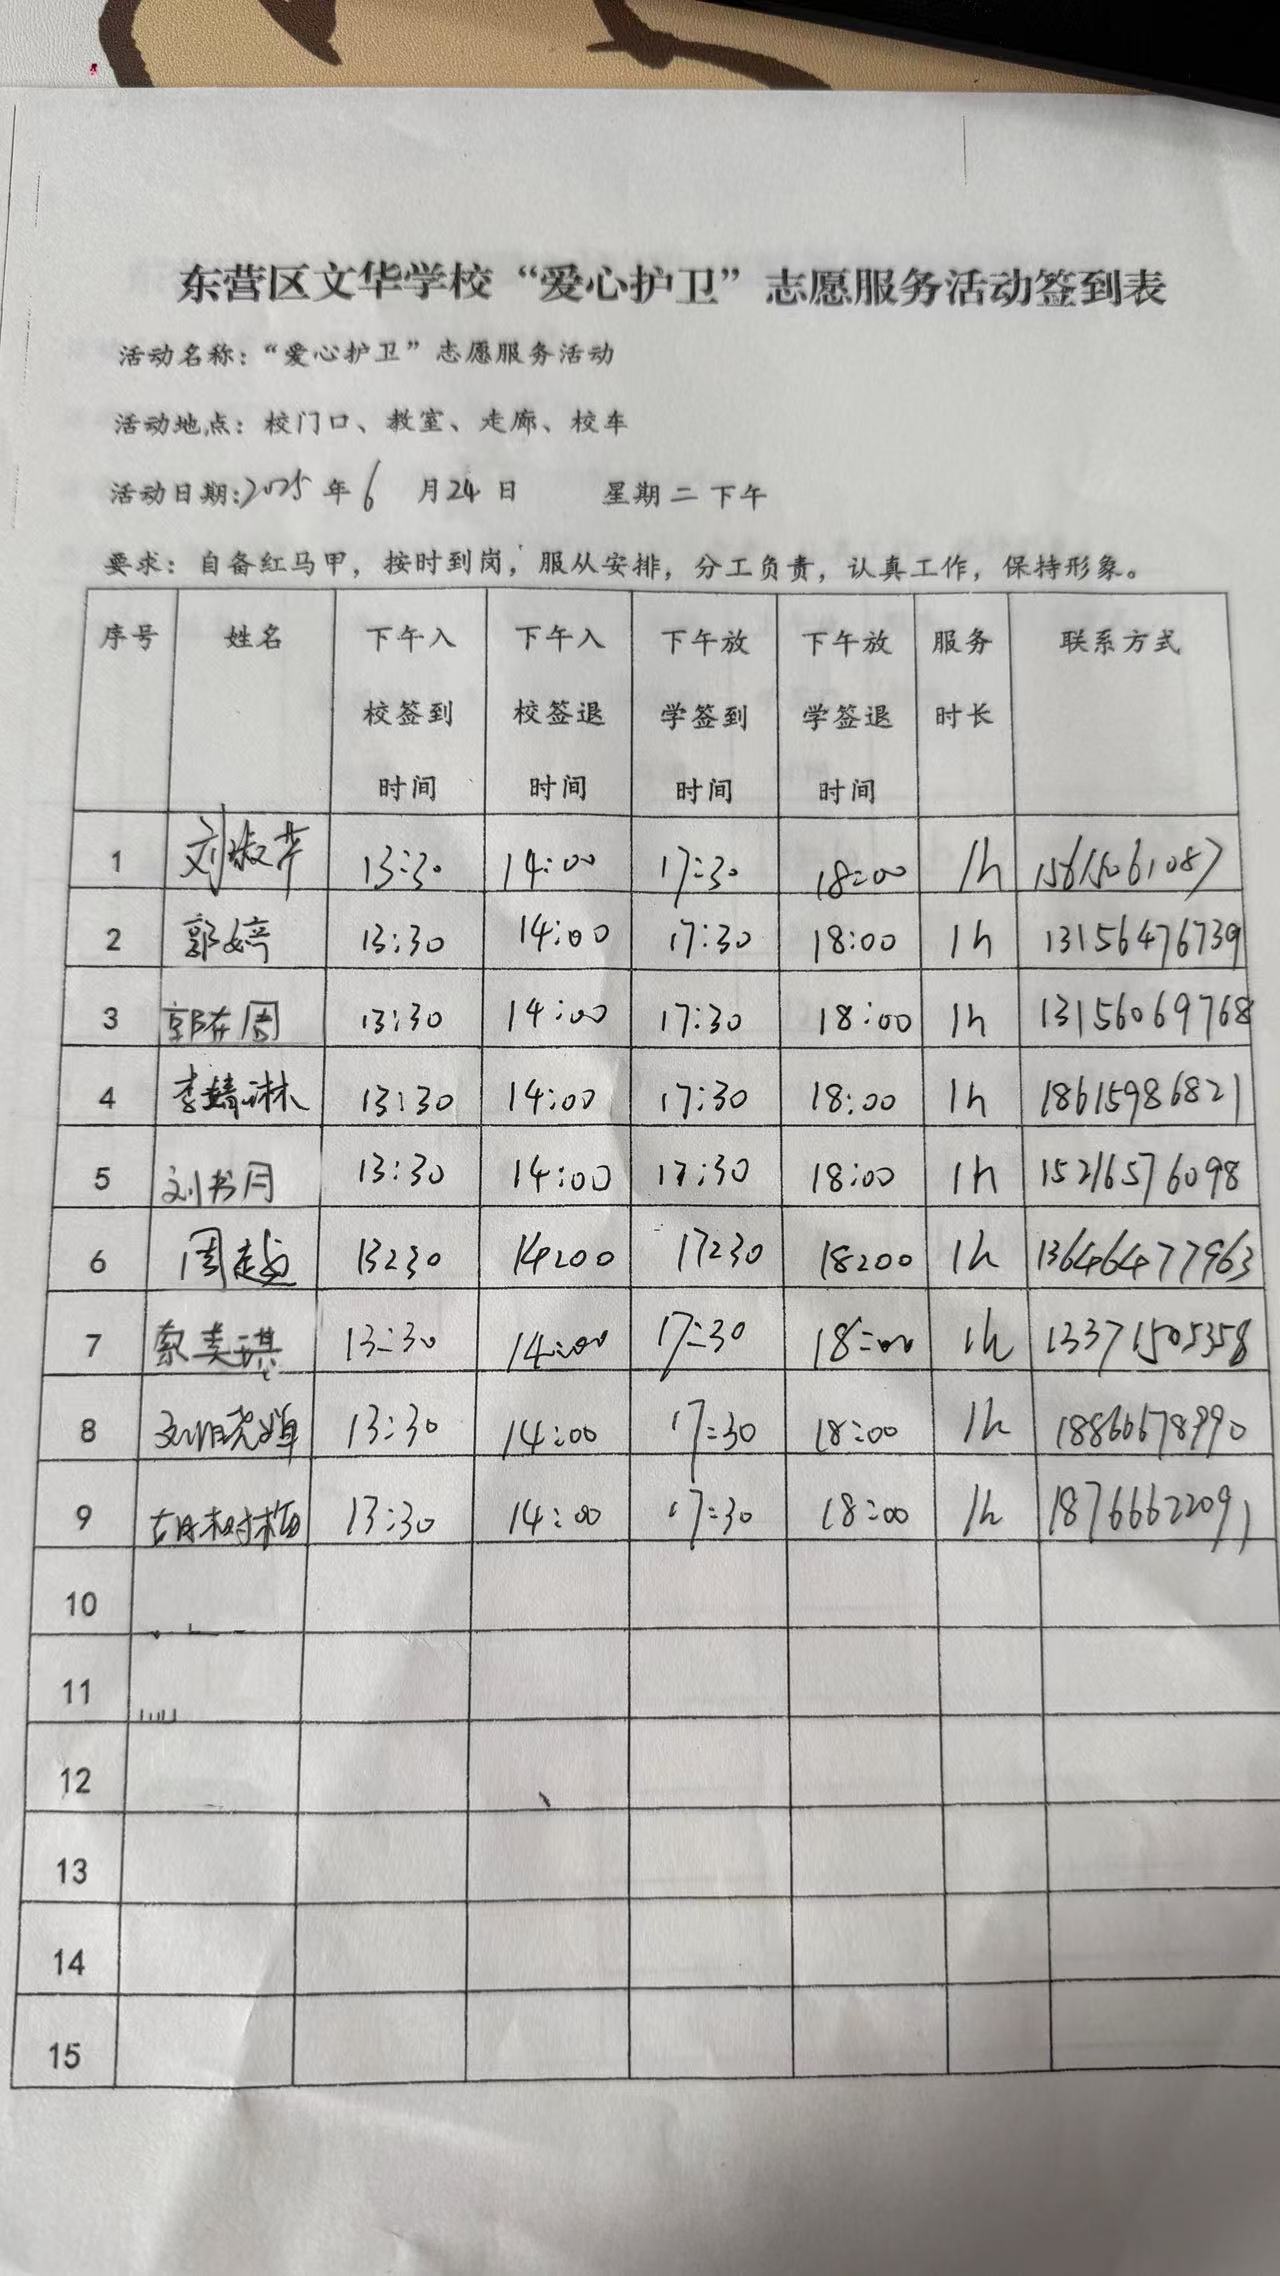 东营区文华学校“爱心护卫”志愿服务活动签到表
活动名称：“爱心护卫”志愿服务活动
活动地点：校门口、教室、走廊、校车
活动日期：2025年6月24日 星期二下午
要求：自备红马甲，按时到岗，服从安排，分工负责，认真工作，保持形象。
序号 姓名 下午入校签到时间 下午入校签退时间 下午放学签到时间 下午放学签退时间 服务时长 联系方式
1 刘淑芹 13:30 14:00 17:30 18:00 1h 15615061087
2 郭婷 13:30 14:00 17:30 18:00 1h 13156476739
3 郭在周 13:30 14:00 17:30 18:00 1h 13156069768
4 李婧琳 13:30 14:00 17:30 18:00 1h 18615986821
5 刘书月 13:30 14:00 17:30 18:00 1h 15216576098
6 周越 13:30 14:00 17:30 18:00 1h 13646477963
7 索美琪 13:30 14:00 17:30 18:00 1h 13371505358
8 13:30 14:00 17:30 18:00 1h 18860678990
9 胡树梅 13:30 14:00 17:30 18:00 1h 18766622091
10
11
12
13
14
15